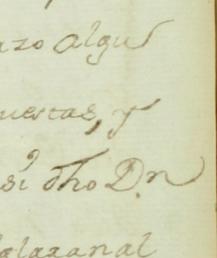 azo algu
uestas, y
si dho Dn
alazanal